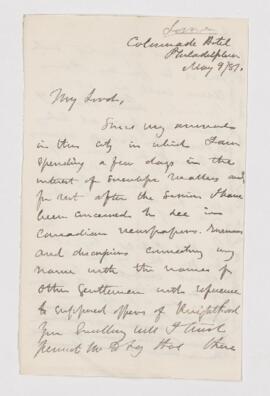 Colonnade Hotel
Philadelphia
May 9/87.
My Lord,
Since my arrival
in this city in which I am
spending a few days in the
interest of scientific matters and
for rest after the Session I have
been concerned to see in
Canadian newspapers rumours
and discussions connecting my
name with the names of
other gentlemen with reference
to supposed offers of Knighthood
Your Excellency will I trust
permit me to say that there